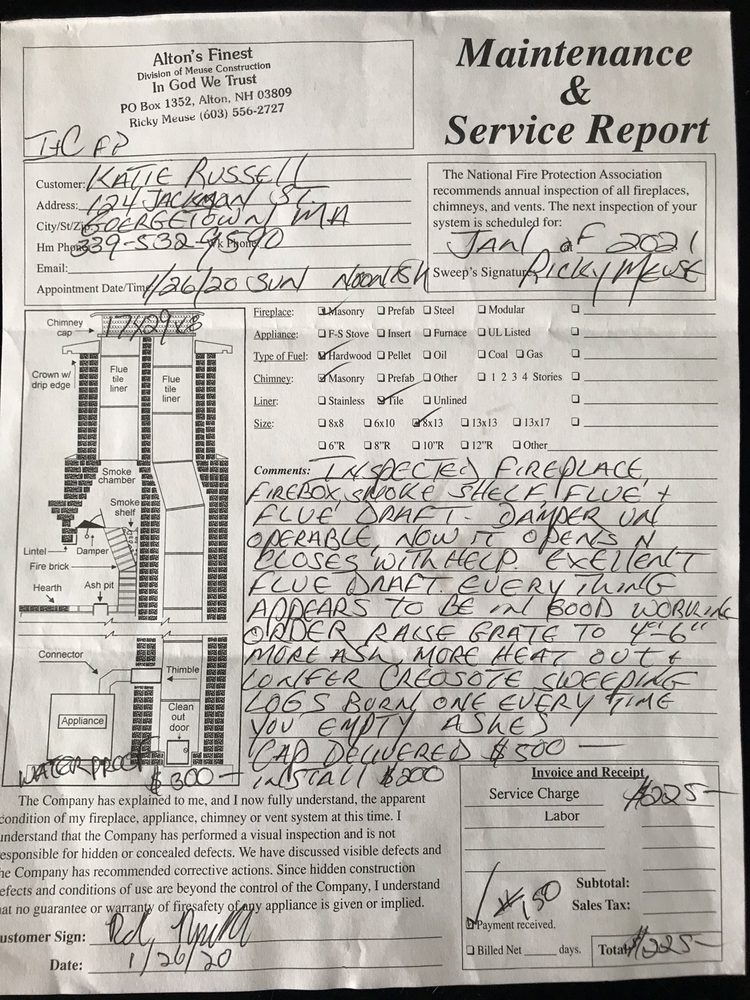 Alton's Finest
Division of Meuse Construction
In God We Trust
PO Box 1352, Alton, NH 03809
Ricky Meuse (603) 556-2727
Maintenance
&
Service Report
I+C FP
Customer: KATIE RUSSELL
Address: 124 JACKMAN ST.
City/St/Zip GOERGETOWN MA
Hm Phone 339-532-9590 Wk Phone
Email:
Appointment Date/Time 1/26/20 SUN NOONISH
The National Fire Protection Association
recommends annual inspection of all fireplaces,
chimneys, and vents. The next inspection of your
system is scheduled for:
JAN of 2021
Sweep's Signature RICKY MEUSE
Chimney cap
17x29x8
Crown w/ drip edge
Flue tile liner
Flue tile liner
Smoke chamber
Smoke shelf
Lintel
Damper
Fire brick
Hearth
Ash pit
Connector
Thimble
Appliance
Clean out door
WATERPROOF $300-
Fireplace: Masonry Prefab Steel Modular
Appliance: F-S Stove Insert Furnace UL Listed
Type of Fuel: Hardwood Pellet Oil Coal Gas
Chimney: Masonry Prefab Other 1 2 3 4 Stories
Liner: Stainless Tile Unlined
Size: 8x8 6x10 8x13 13x13 13x17
6"R 8"R 10"R 12"R Other
Comments: INSPECTED FIREPLACE,
FIREBOX, SMOKE SHELF, FLUE +
FLUE DRAFT - DAMPER UN
OPERABLE, NOW IT OPENS N
CLOSES WITH HELP. EXELLENT
FLUE DRAFT. EVERY THING
APPEARS TO BE IN GOOD WORKING
ORDER RAISE GRATE TO 4"-6"
MORE ASH, MORE HEAT OUT +
CONIFER CREOSOTE SWEEPING
LOGS BURN ONE EVERY TIME
YOU EMPTY ASHES
CAP DELIVERED $500 -
INSTALL $200
The Company has explained to me, and I now fully understand, the apparent
condition of my fireplace, appliance, chimney or vent system at this time. I
understand that the Company has performed a visual inspection and is not
esponsible for hidden or concealed defects. We have discussed visible defects and
he Company has recommended corrective actions. Since hidden construction
efects and conditions of use are beyond the control of the Company, I understand
at no guarantee or warranty of firesafety of any appliance is given or implied.
ustomer Sign:
Date: 1/26/20
Invoice and Receipt
Service Charge $225-
Labor
Subtotal:
Sales Tax:
Payment received.
Billed Net days. Total: $225-